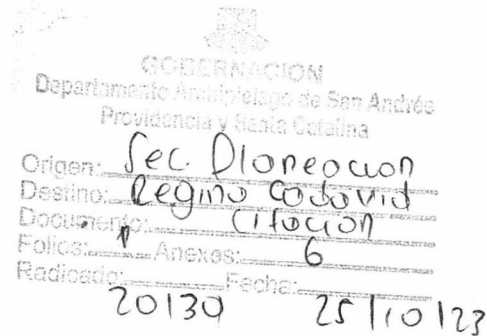 GOBERNACION
Departamento Archipiélago de San Andrés
Providencia y Santa Catalina
Origen: Sec. Planeacion
Destino: Regino
Documento: Citacion
Folios: 1 Anexos: 6
Radicado: 20130 Fecha: 25/10/23